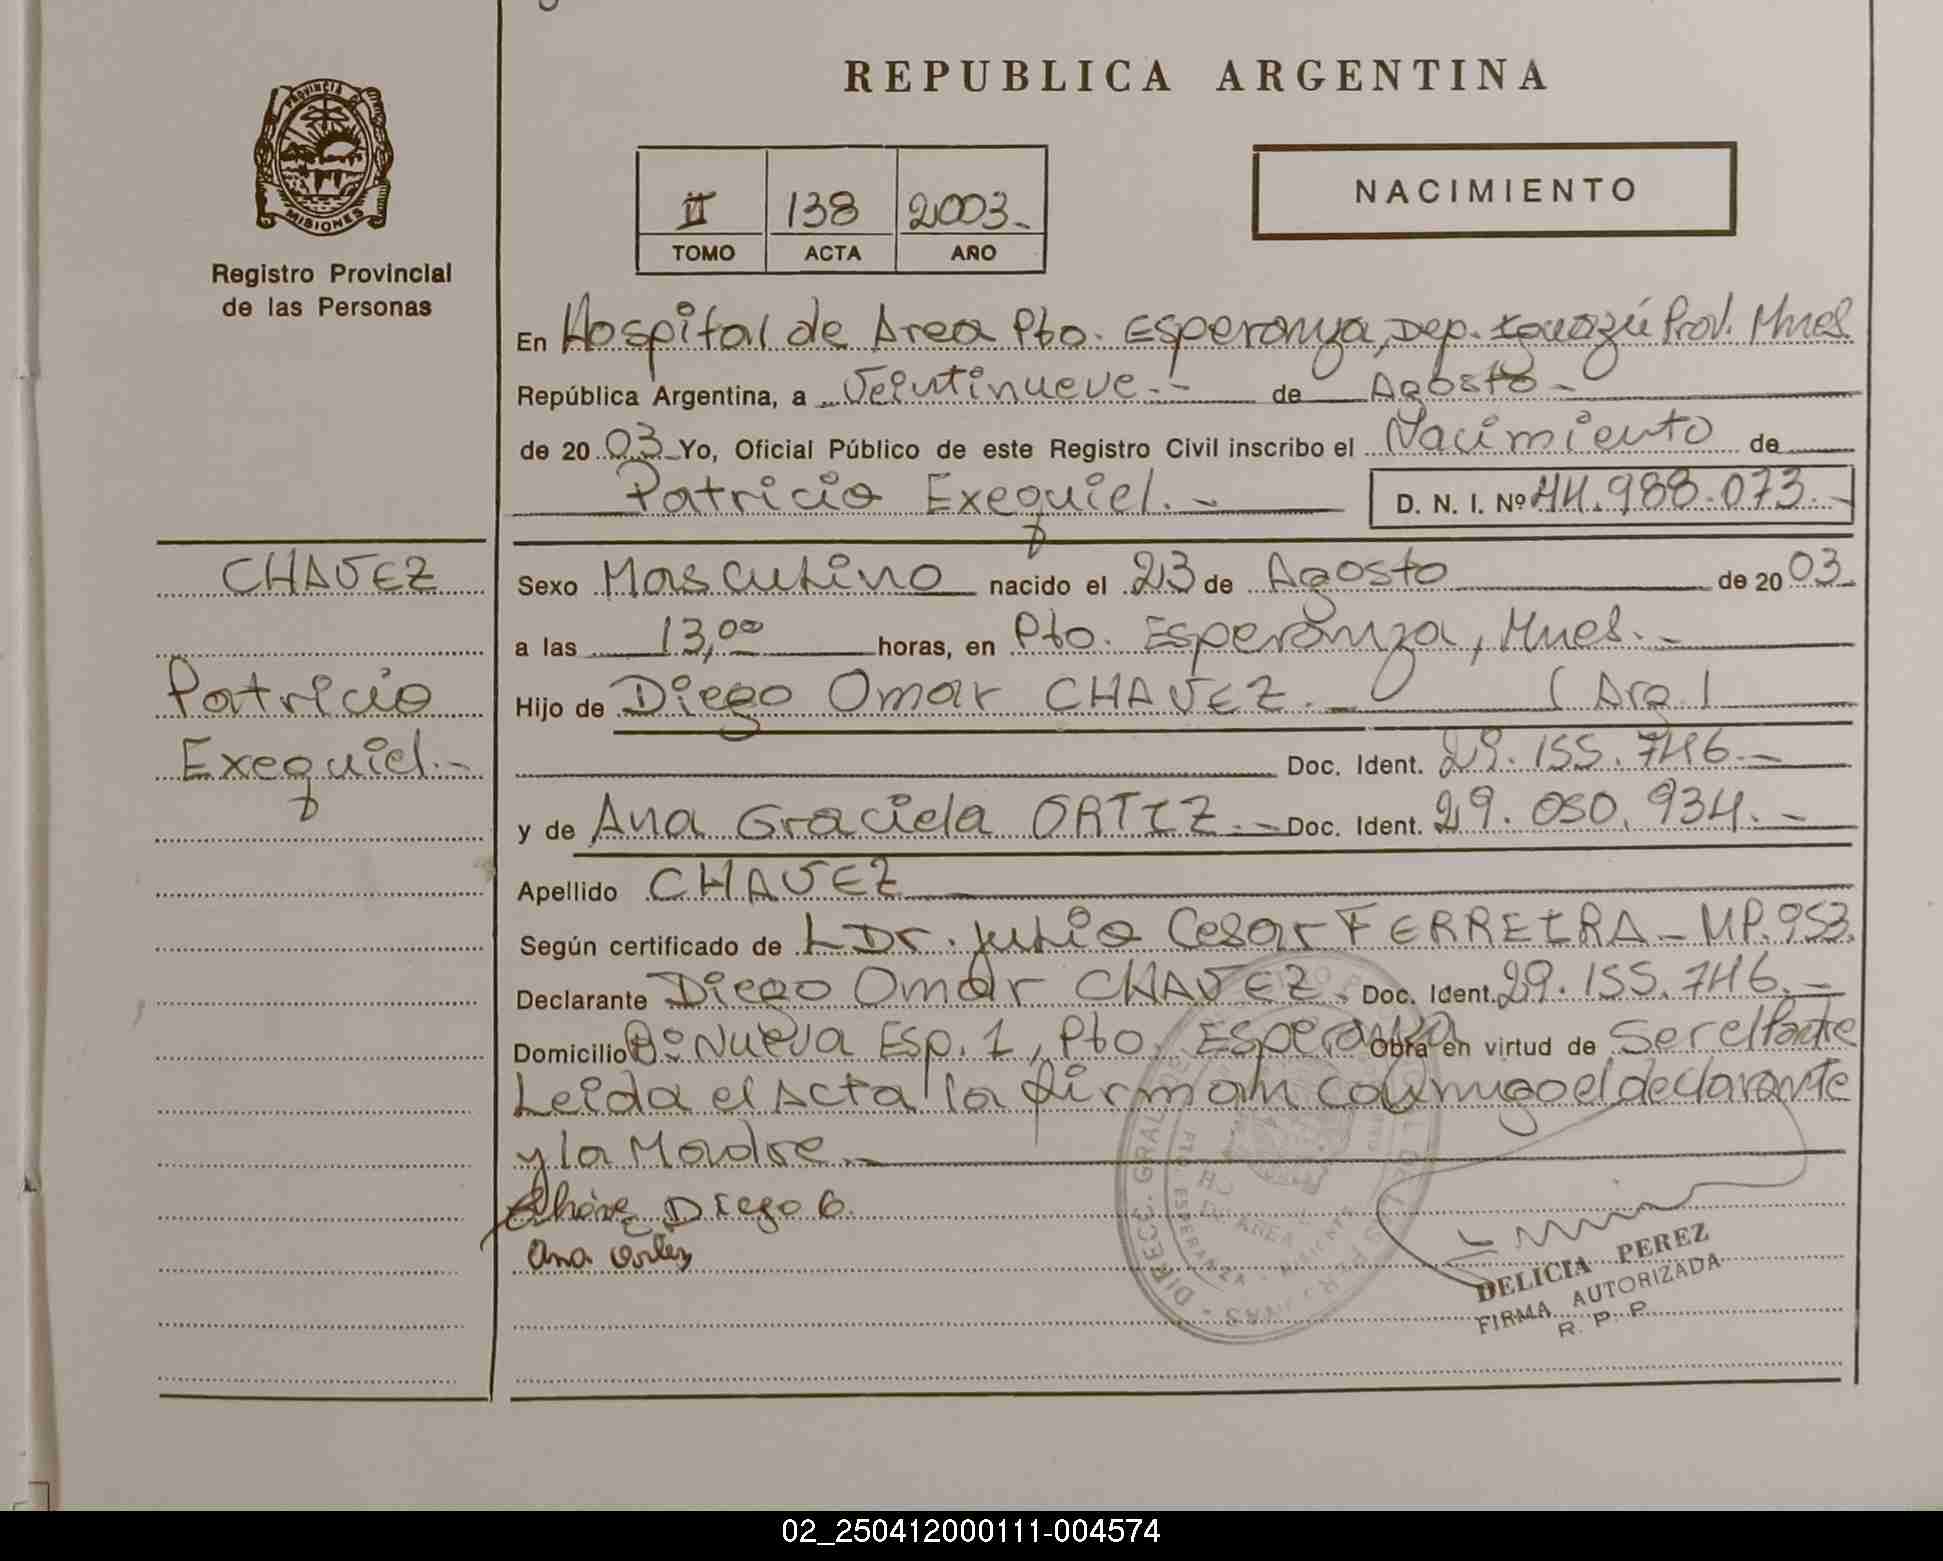 REPUBLICA ARGENTINA
PROVINCIA DE
MISIONES
Registro Provincial
de las Personas
II 138 2003.-
TOMO ACTA AÑO
NACIMIENTO
En Hospital de Area Pto. Esperanza, Dep. Iguazú Prov. Mnes
República Argentina, a Veintinueve.- de Agosto-
de 20 03 Yo, Oficial Público de este Registro Civil inscribo el Nacimiento de
Patricio Exequiel.- D. N. I. Nº 44.988.073.-
CHAVEZ
Patricio
Exequiel.-
Sexo Masculino nacido el 23 de Agosto de 20 03
a las 13,00 horas, en Pto. Esperanza, Mnes.-
Hijo de Diego Omar CHAVEZ.- (Arg.)
Doc. Ident. 29.155.746.-
y de Ana Graciela ORTIZ.- Doc. Ident. 29.050.934.-
Apellido CHAVEZ
Según certificado de Dr. Julio Cesar FERREIRA - MP.953.
Declarante Diego Omar CHAVEZ. Doc. Ident. 29.155.746.-
Domicilio Bº Nueva Esp. 1, Pto. Esperanza Obra en virtud de Ser el Padre
Leida el Acta la firman conmigo el declarante
y la Madre.-
Chávez Diego O.
Ana Ortiz
DELICIA PEREZ
FIRMA AUTORIZADA
R. P. P.
02_250412000111-004574